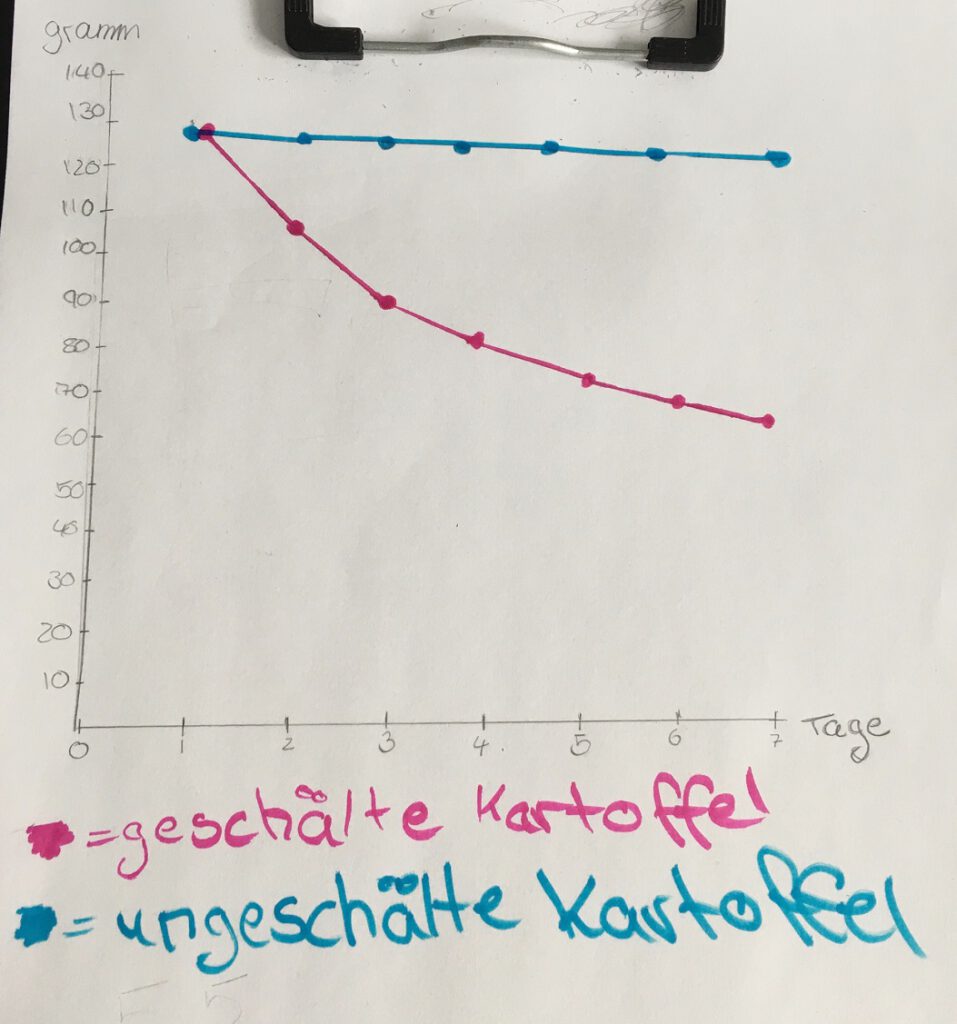 gramm
140
130
120
110
100
90
80
70
60
50
40
30
20
10
0 1 2 3 4 5 6 7 Tage
=geschälte Kartoffel
= ungeschälte Kartoffel